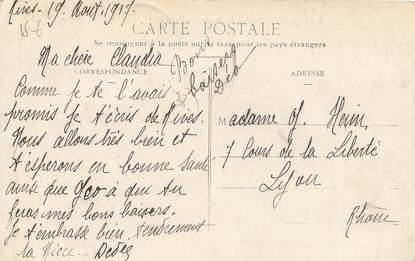 Rives - 19 Août 1917.
15 €
CARTE POSTALE
Se renseigner à la poste sur sa taxe pour les pays étrangers
CORRESPONDANCE
ADRESSE
Ma chère Claudia
Comme je te l'avais
promis je t'écris de Rives.
Nous allons très bien et
t'esperons en bonne santé
ainsi que Geo à qui tu
feras mes bons baisers.
Je t'embrasse bien tendrement
ta Nièce Dédée
Bons
baisers
Déo
Madame J. Heim,
7 Cours de la Liberté
Lyon
Rhône